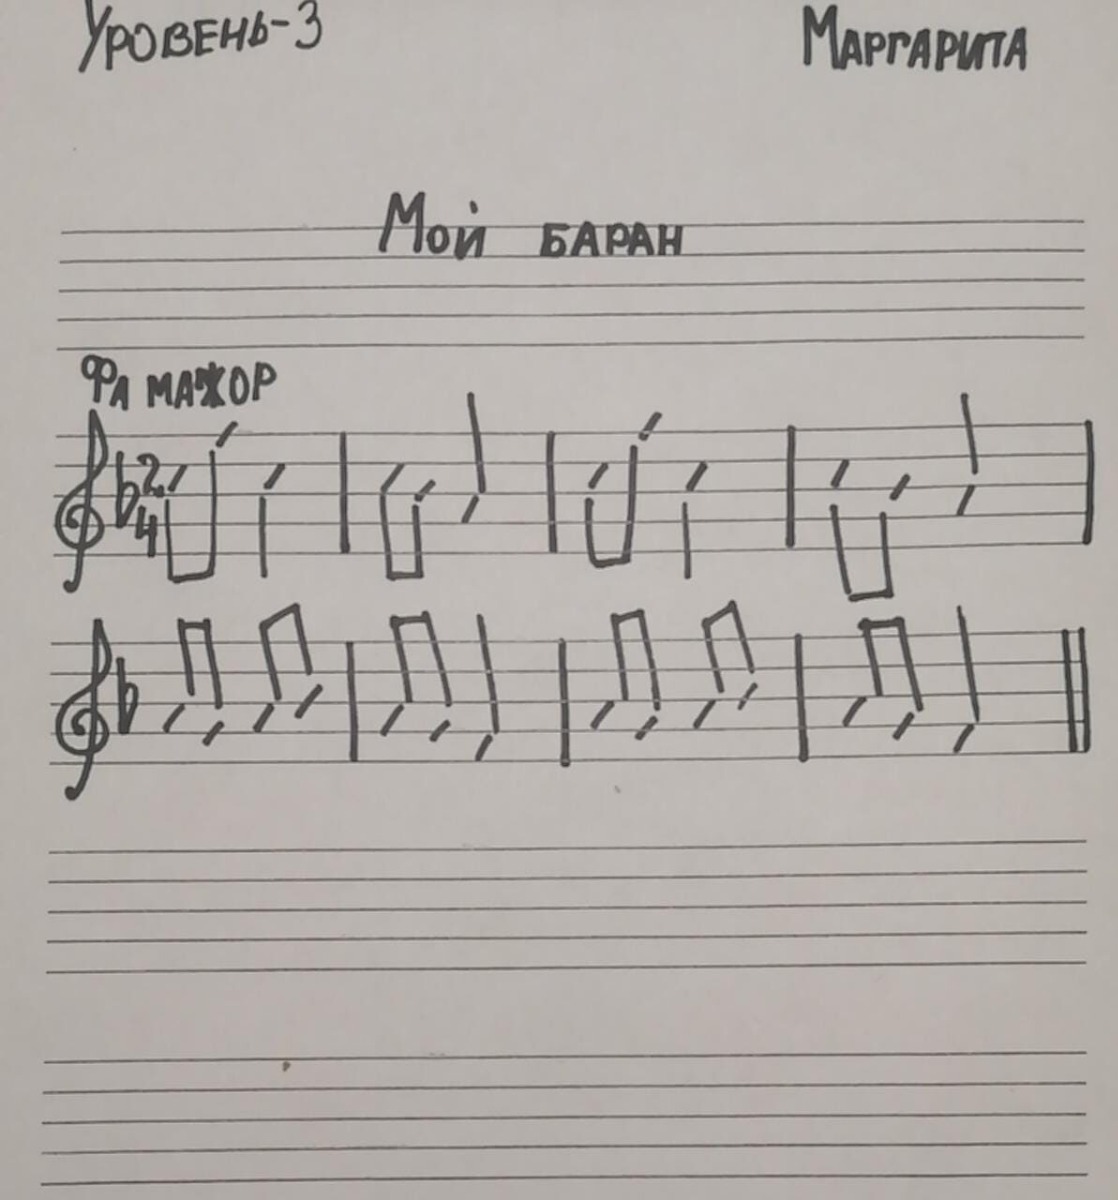 Уровень-3
Маргарита
Мой баран
Фа мажор
2
4